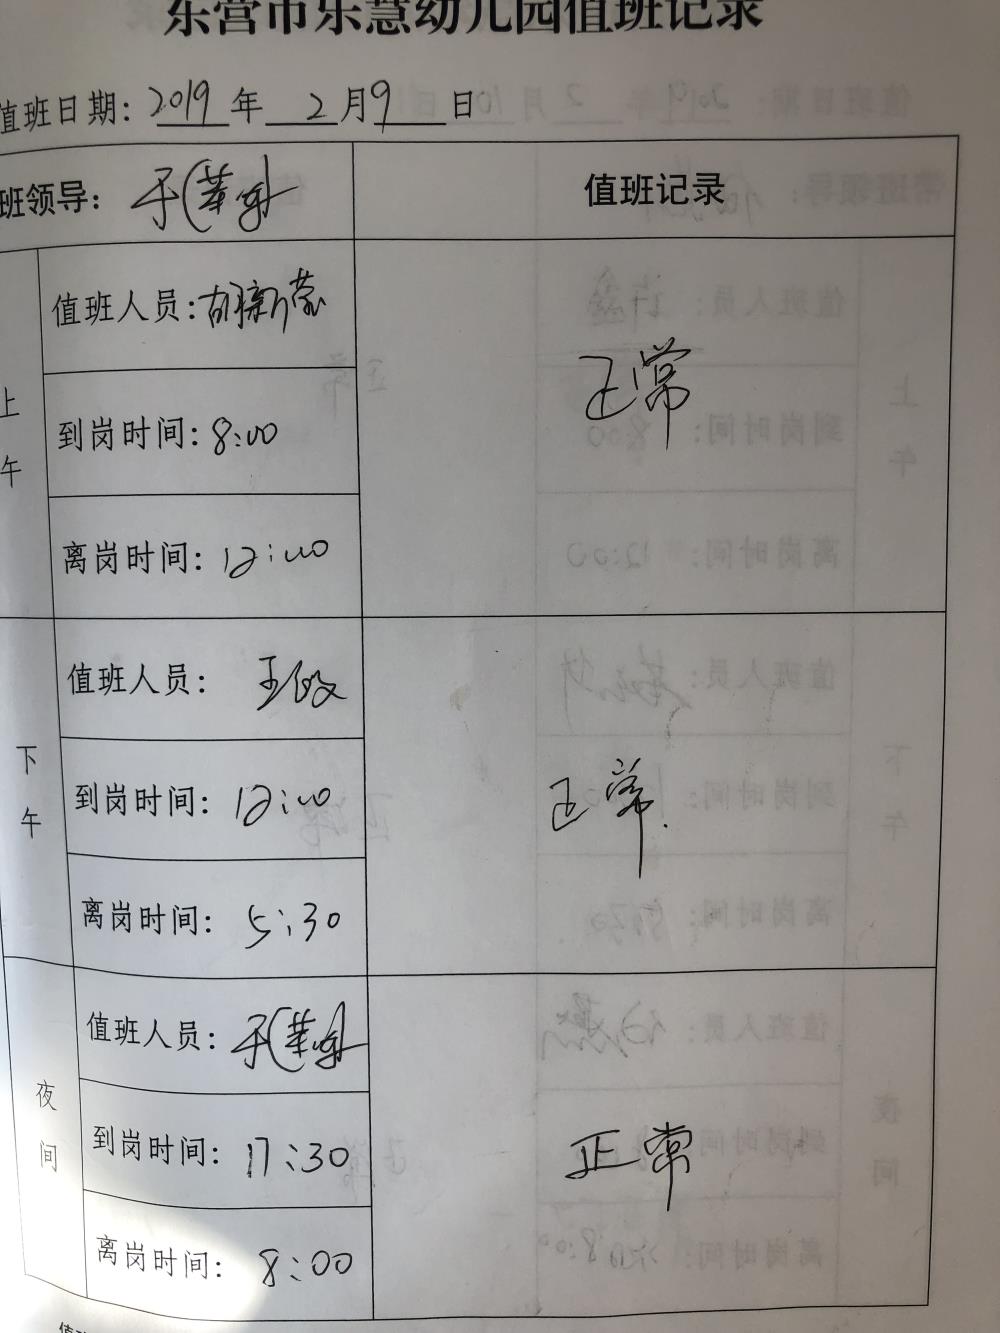 东营市乐慧幼儿园值班记录
值班日期：2019年 2月9日
班领导：
值班记录
上午
值班人员：胡新蕊
到岗时间：8:00
离岗时间：12:00
正常
下午
值班人员：王
到岗时间：12:00
离岗时间：5:30
正常
夜间
值班人员：
到岗时间：17:30
离岗时间：8:00
正常